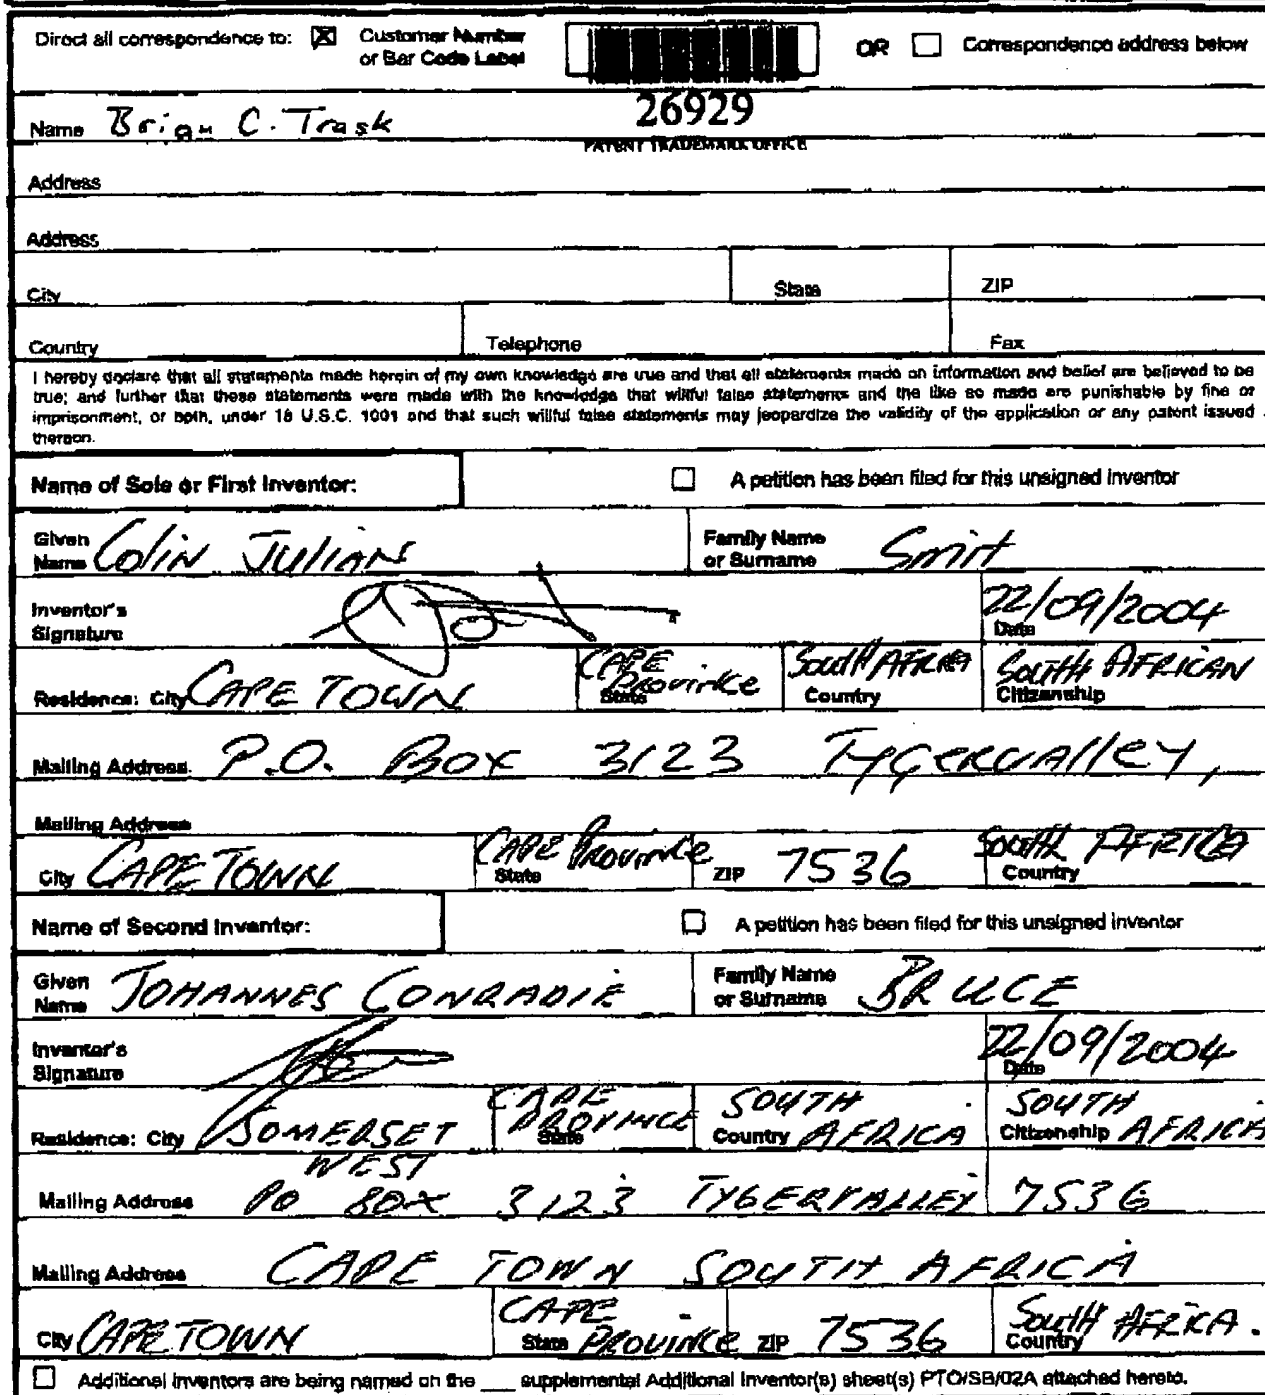 Direct all correspondence to: ☒ Customer Number or Bar Code Label OR ☐ Correspondence address below
26929
PATENT TRADEMARK OFFICE
Name Brian C. Trask
Address
Address
City State ZIP
Country Telephone Fax
I hereby declare that all statements made herein of my own knowledge are true and that all statements made on information and belief are believed to be
true; and further that these statements were made with the knowledge that willful false statements and the like so made are punishable by fine or
imprisonment, or both, under 18 U.S.C. 1001 and that such willful false statements may jeopardize the validity of the application or any patent issued
thereon.
Name of Sole or First Inventor: ☐ A petition has been filed for this unsigned inventor
Given Name Colin Julian Family Name or Surname Smit
Inventor's Signature 22/09/2004 Date
Residence: City CAPE TOWN CAPE Province State South AFRICA Country SOUTH AFRICAN Citizenship
Mailing Address P.O. Box 3123 TYGERVAllEY,
Mailing Address
City CAPE TOWN CAPE Province State ZIP 7536 South AFRICA Country
Name of Second Inventor: ☐ A petition has been filed for this unsigned inventor
Given Name JOHANNES CONRADIE Family Name or Surname BRUCE
Inventor's Signature 22/09/2004 Date
Residence: City SOMERSET WEST CAPE PROVINCE State SOUTH AFRICA Country SOUTH AFRICA Citizenship
Mailing Address PO BOX 3123 TYGERVALLEY 7536
Mailing Address CAPE TOWN SOUTH AFRICA
City CAPE TOWN CAPE PROVINCE State ZIP 7536 South AFRICA. Country
☐ Additional inventors are being named on the ___ supplemental Additional Inventor(s) sheet(s) PTO/SB/02A attached hereto.